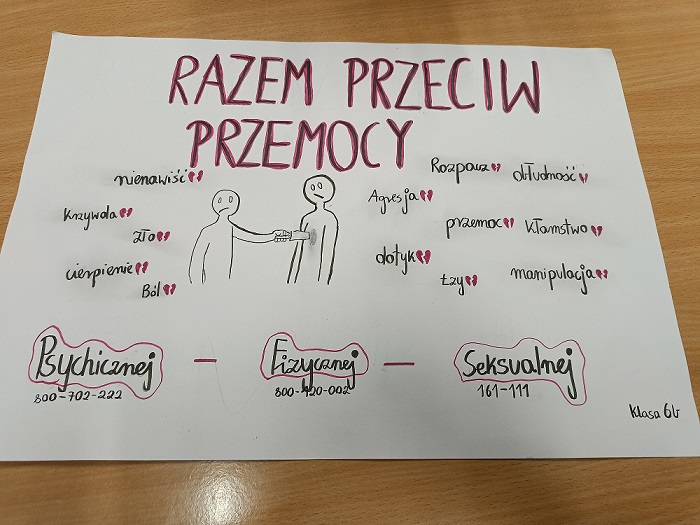 RAZEM PRZECIW
PRZEMOCY
nienawiść
Krzywda
zło
cierpienie
Ból
Rozpacz
obłudność
Agresja
przemoc
kłamstwo
dotyk
Łzy
manipulacja
Psychicznej - Fizycznej - Seksualnej
800-702-222
800-120-002
161-111
Klasa 6b